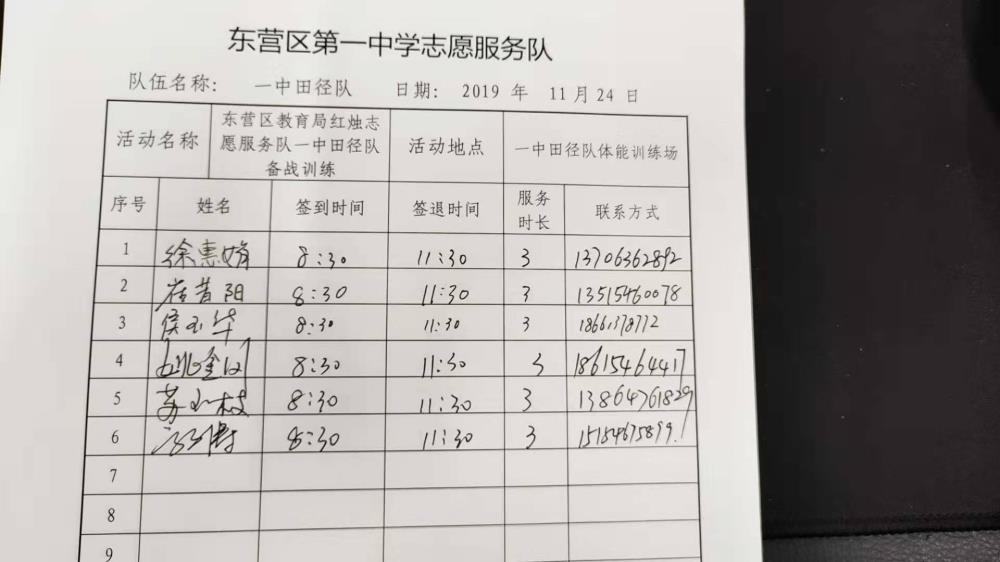 东营区第一中学志愿服务队
队伍名称: 一中田径队 日期: 2019 年 11月24 日
活动名称 东营区教育局红烛志愿服务队一中田径队备战训练 活动地点 一中田径队体能训练场
序号 姓名 签到时间 签退时间 服务时长 联系方式
1 徐惠娟 8:30 11:30 3 13706362892
2 昔阳 8:30 11:30 3 13515460078
3 侯玉华 8:30 11:30 3
4 8:30 11:30 3 18615464417
5 苏小枝 8:30 11:30 3 13864761829
6 8:30 11:30 3 15154675899
7
8
9